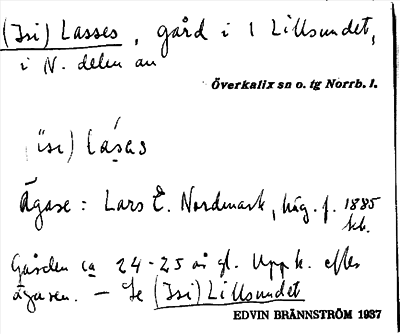 (Isi) Lasses, gård i 1 Lillsundet,
i N. delen av
Överkalix sn o. tg Norrb. l.
isi) lasas
Ägare: Lars E. Nordmark, häg. f. 1885
Gården ca 24-25 år gl. Uppk. efter
ägaren. – Se (Isi) Lillsundet
EDVIN BRÄNNSTRÖM 1937